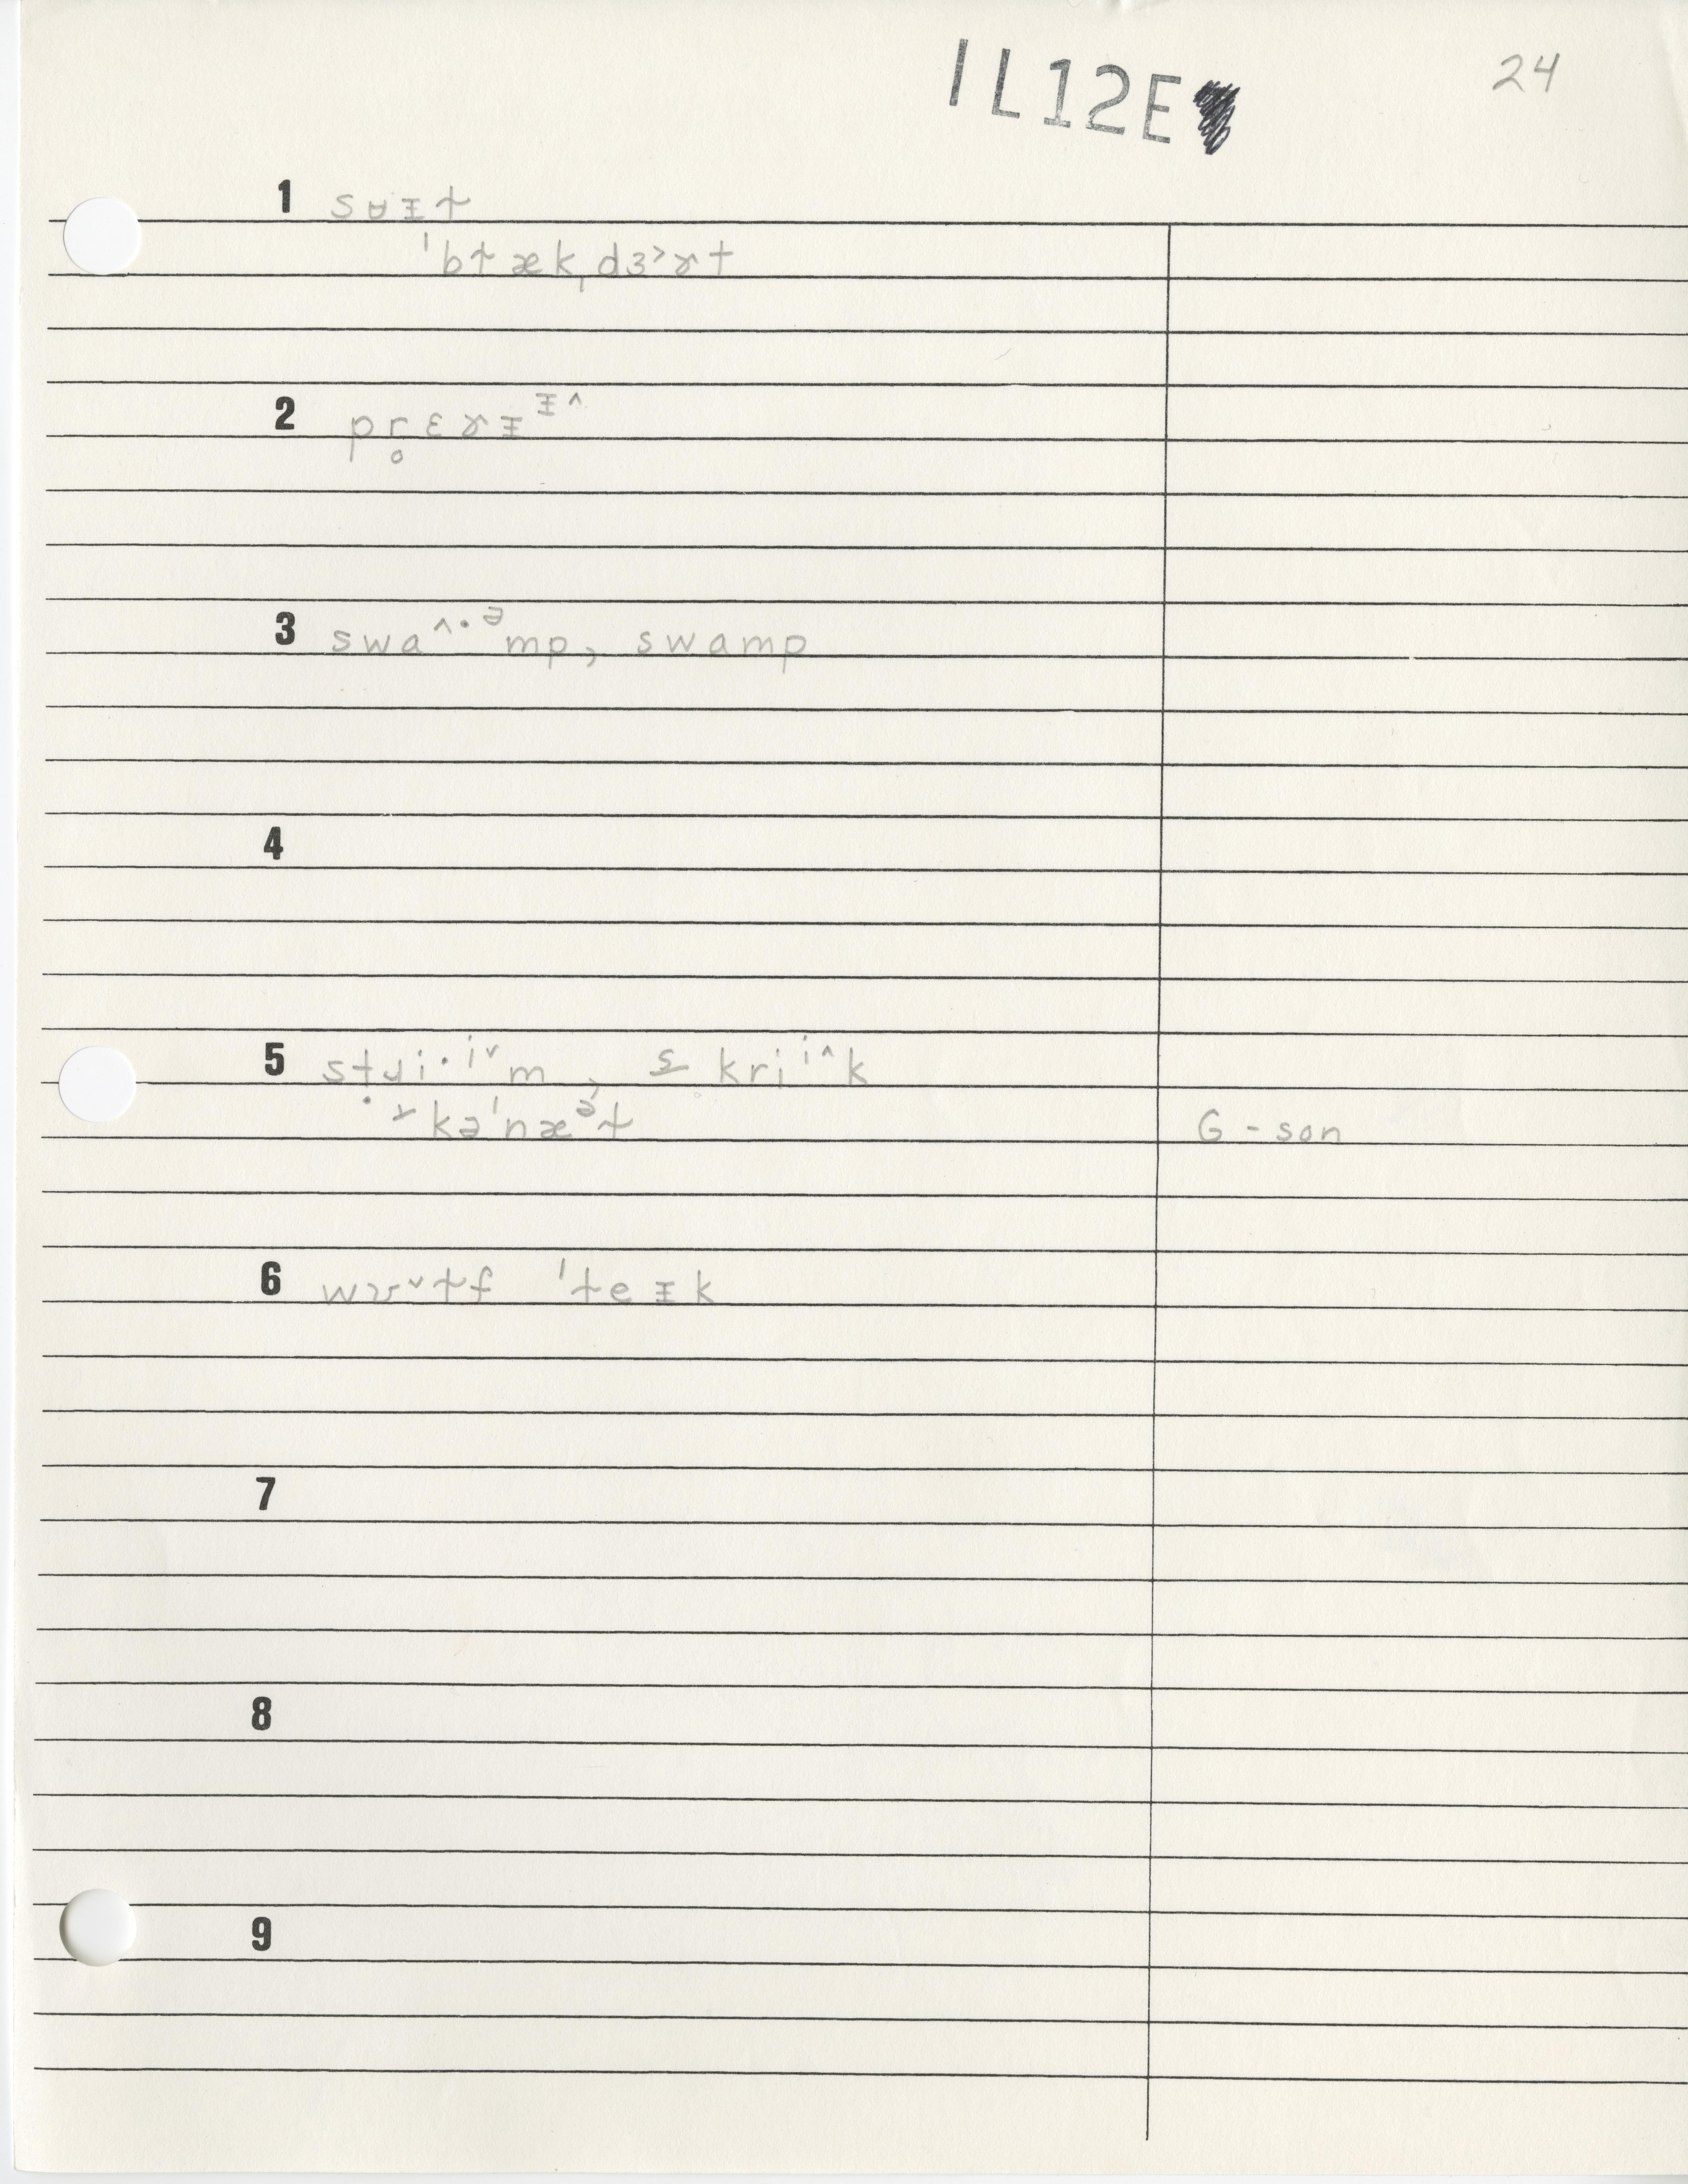 IL12E
24
1 sɵᵻɫ
ˈbɫækˌdɜ˃ɤt
2 pr̥ɛɤᵻᵻ˄
3 swa˄·ə mp, swamp
4
5 stɹi·i˅m, s kriⁱ˄k
kəˈnæəɫ
G - son
6 wʊ˅ɫf ˈɫeᵻk
7
8
9